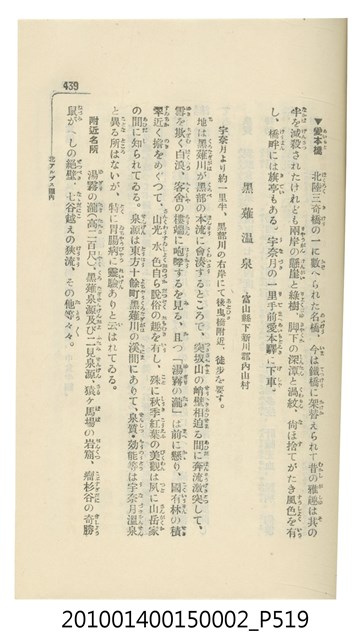 439
北アルプス圈内
▼愛本橋 北陸三奇橋の一に數へられた名橋、今は鐵橋に架替えられて昔の雅趣は其の
半を減殺されたけれども兩岸の懸崖と綠樹、脚下の深潭と渦紋、尙は捨てがたき風色を有
し、橋畔には旗亭もある。宇奈月の一里手前愛本驛に下車。
黑薙温泉 富山縣下新川郡內山村
宇奈月より約一里半、黑部川の右岸にて後曳橋附近、徒步を要す。
地は黑薙川が黑部の本流に會湊するところで、突坂山の峭壁相迫る間に奔流激突して、
雪を欺く白浪、客舍の樓端に咆哮するを見る、且つ「湯霧の瀧」は前に懸り、國有林の積
翠近く擔をめぐつて、山光、水色自ら脫俗の趣を有し、殊に秋季紅葉の美觀は夙に山岳家
の間に知られてゐる。泉源は東方十餘町黑薙川の溪間にありて、泉質・効能等は宇奈月温泉
と異る所はないが、特に胃腸病に靈驗ありと云はれてゐる。
附近名所 湯霧の瀧(高二百尺)、黑薙泉源及び二見泉源、猿ヶ馬場の岩窟、瘤杉谷の奇勝
鼠がへしの絕壁、十谷越えの狹流、その他等々。
201001400150002_P519